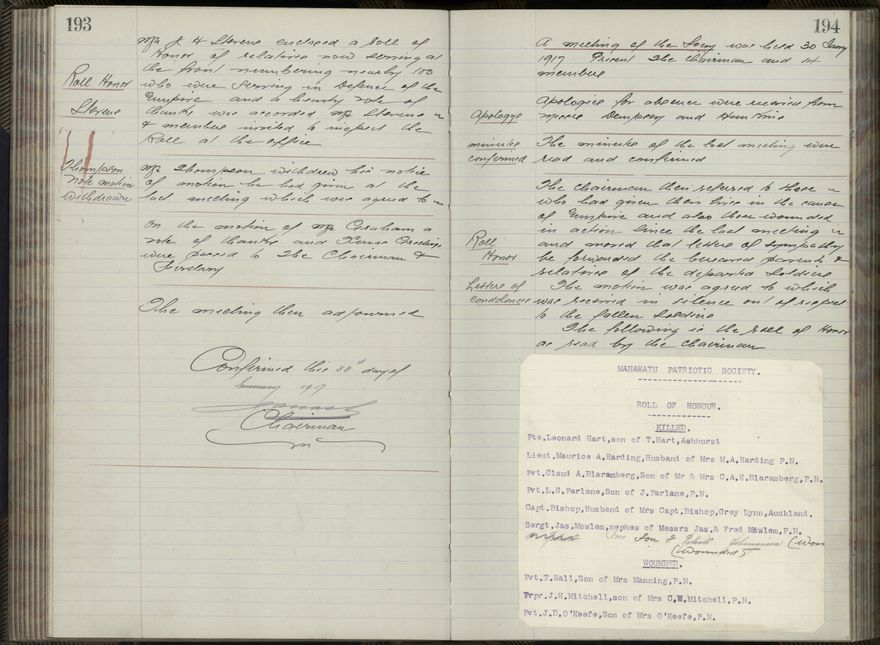 193
Mr J H Stevens enclosed a Roll of
Honor of relatives now serving at
the front numbering nearly 100
who were serving in Defence of the
Empire and a hearty vote of
thanks was accorded Mr Stevens
& members invited to inspect the
Roll at the office
Roll Honor
Stevens
Thompson
note motion
withdrawn
Mr Thompson withdrew his notice
of motion he had given at the
last meeting which was agreed to
On the motion of Mr Graham a
vote of thanks and
were passed to the Chairman &
Secretary
The meeting then adjourned
Confirmed this 30th day of
January 1917
Chairman
194
A meeting of the Socy was held 30 Jany
1917 Present The Chairman and 14
members
Apology
Apologies for absence were received from
Messrs Dempsey and
minutes
confirmed
The minutes of the last meeting were
read and confirmed
The Chairman then referred to those
who had given their lives in the cause
of Empire and also those wounded
in action since the last meeting
Roll
Honor
and moved that letters of sympathy
be forwarded the bereaved parents &
relatives of the departed soldiers
Letters of
condolence
The motion was agreed to which
was received in silence out of respect
to the fallen soldiers
The following is the roll of Honor
as read by the Chairman
MANAWATU PATRIOTIC SOCIETY.
ROLL OF HONOUR.
KILLED.
Pte.Leonard Hart,son of T.Hart,Ashhurst
Lieut.Maurice A.Harding,Husband of Mrs M.A.Harding P.N.
Pvt.Claud A.Blaramberg,Son of Mr & Mrs C.A.H.Blaramberg,P.N.
Pvt.L.G.Parlane,Son of J.Parlane,P.N.
Capt.Bishop,Husband of Mrs Capt.Bishop,Grey Lynn,Auckland.
Sergt.Jas.Mowlem,nephew of Messrs Jas.& Fred Mowlem,P.N.
Son of
(Wounded)
WOUNDED.
Pvt.T.Wall,Son of Mrs Manning,P.N.
Trpr.J.H.Mitchell,son of Mrs C.W.Mitchell,P.N.
Pvt.J.D.O'Keefe,Son of Mrs O'Keefe,P.N.